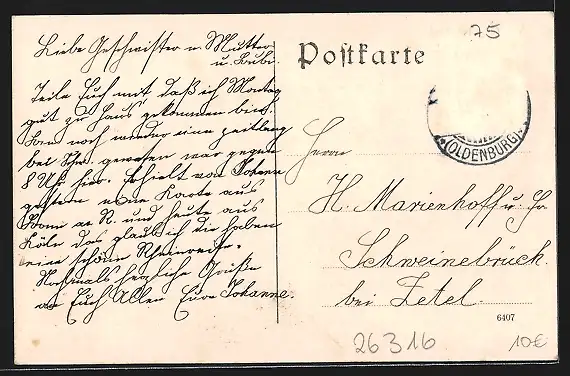 75
Postkarte
(OLDENBURG)
Liebe Geschwister u. Mutter
u. Bubi.
Teile Euch mit daß ich Montag
gut zu Haus gekommen bin.
noch wieder eine zeitlang
bei gewesen war gegen
8 Uhr hier. Erhielt von Johann
gestern eine Karte aus
Bonn a. R. und heute aus
Köln das glaub ich die haben
eine schöne Rheinreise.
Nochmals herzliche Grüße
an Euch Allen Eure Johanne.
Herrn
H. Marienhoff u. Fr.
Schweinebrück.
bei Zetel.
6407
26316
10€